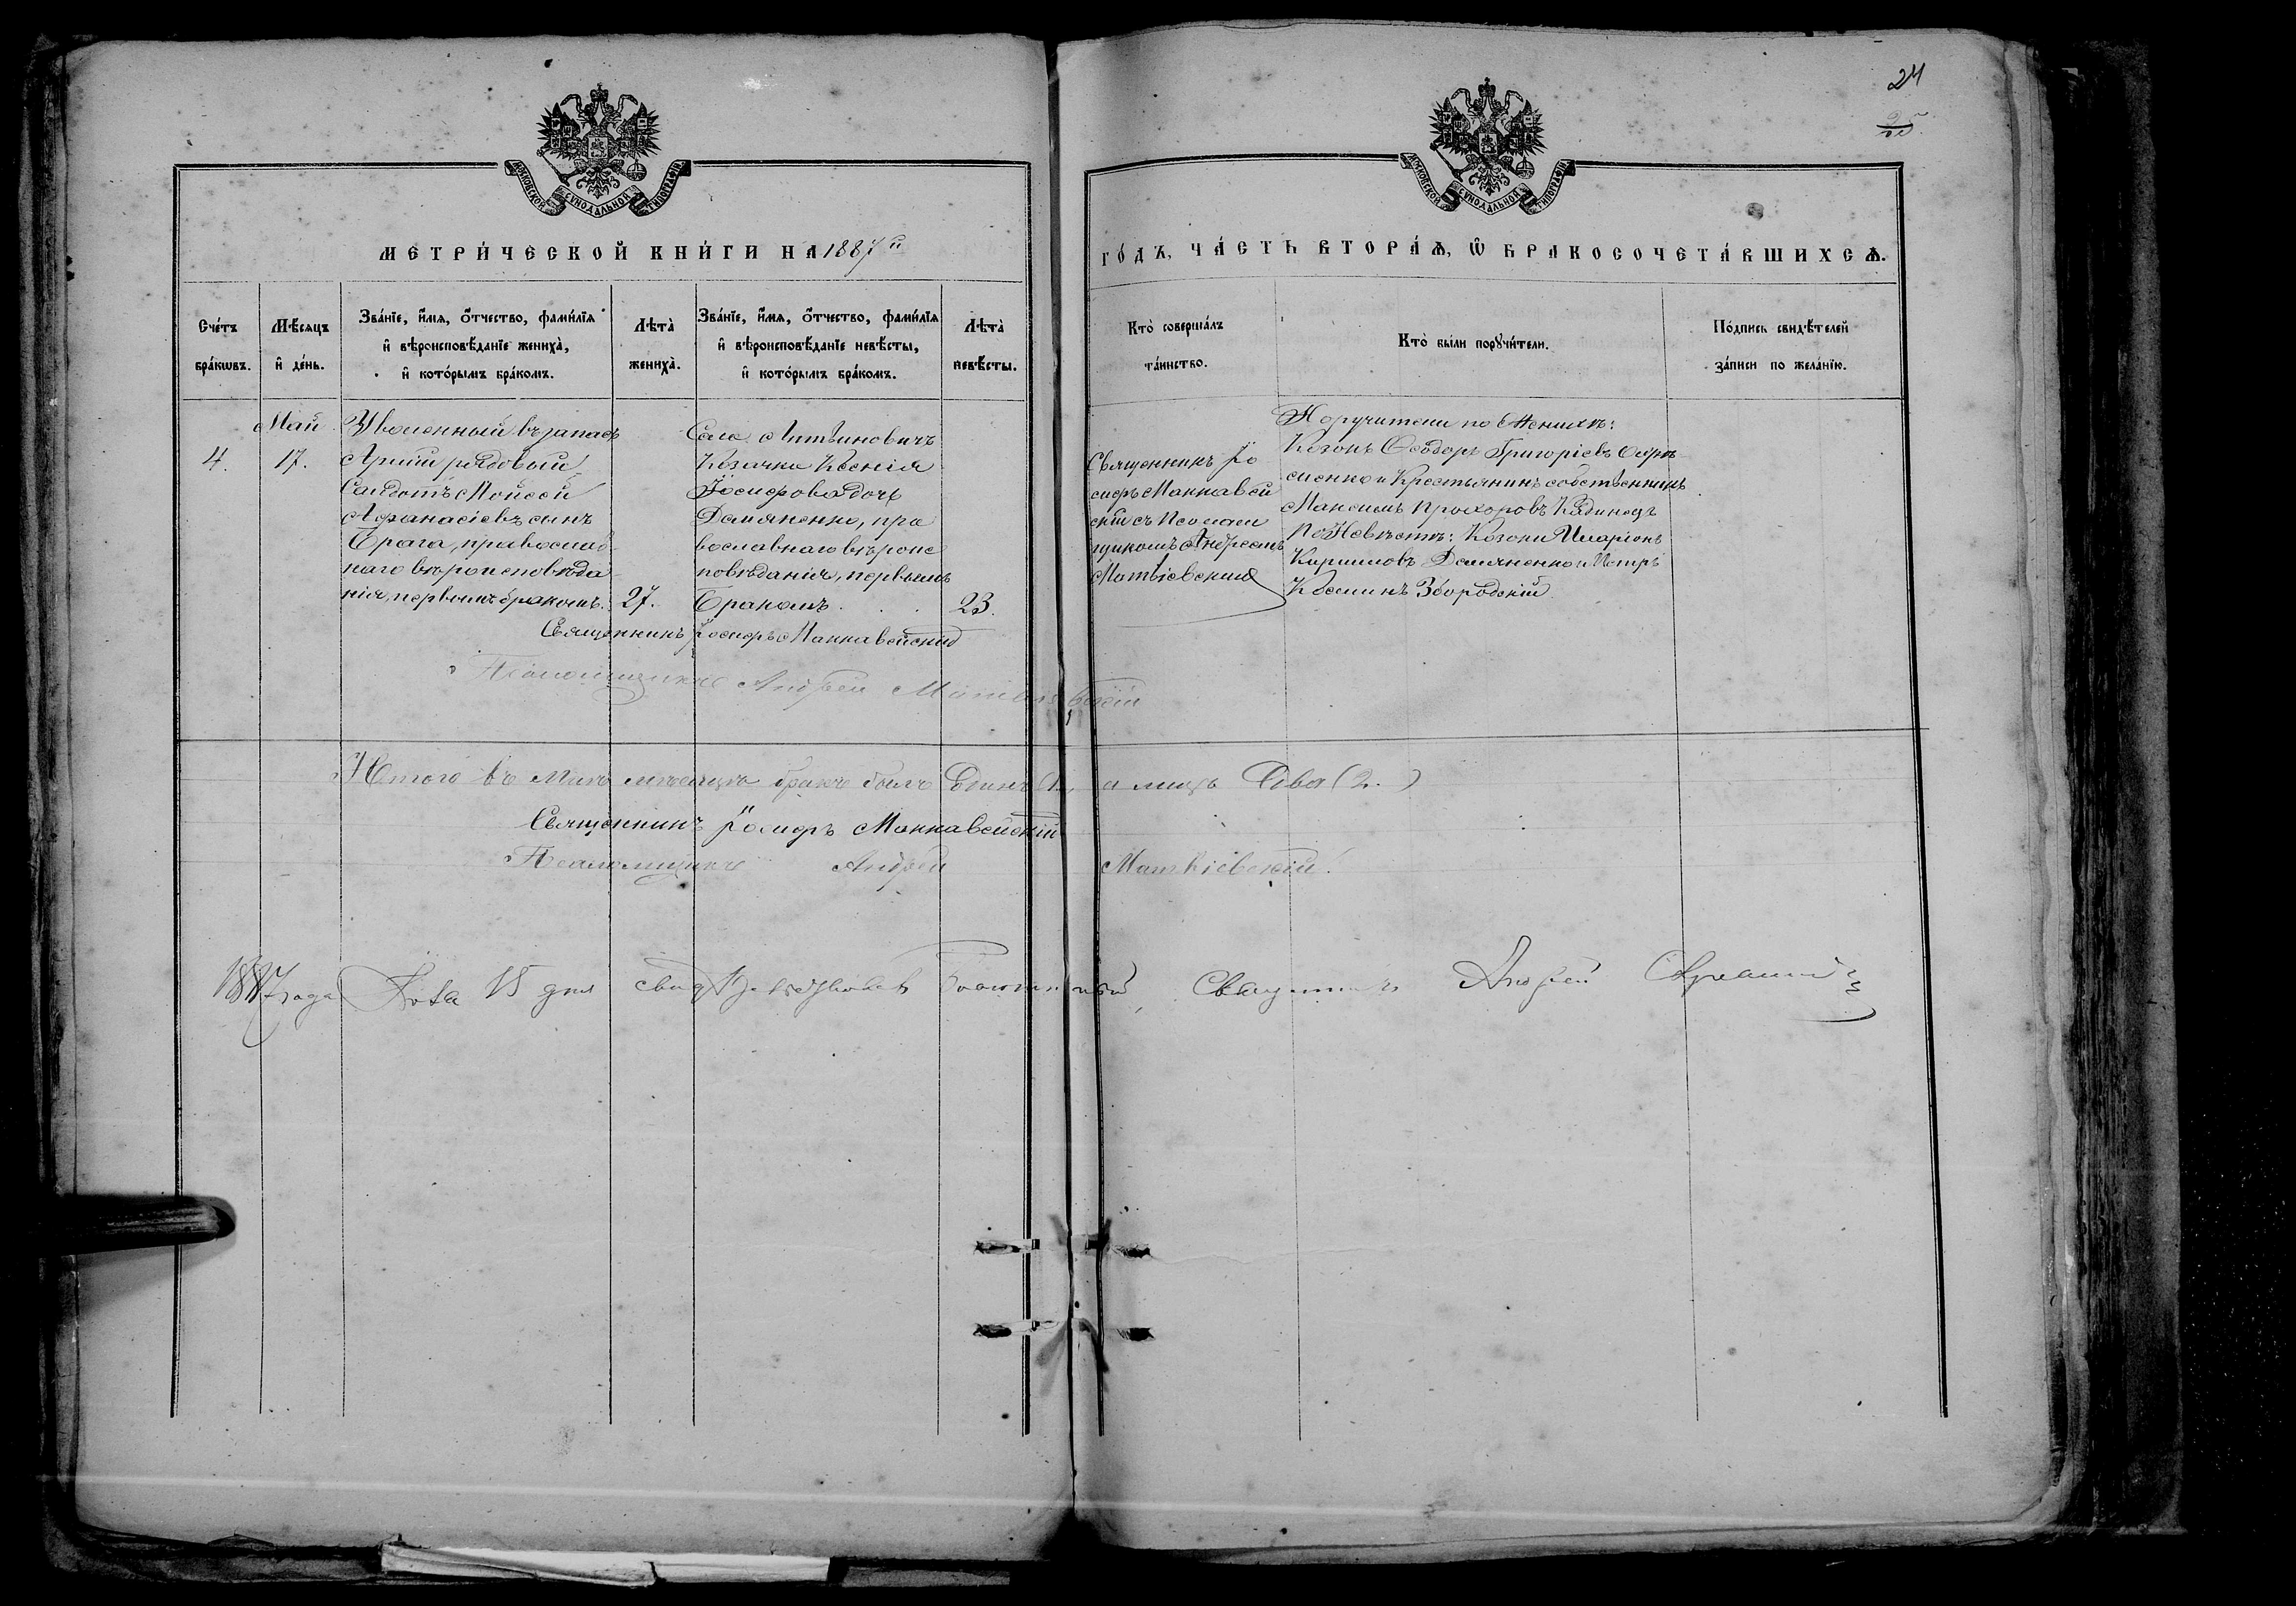 24
25.
МОСКОВСКОЙ СѴНОДАЛЬНОЙ ТИПОГРАФІИ
МОСКОВСКОЙ СѴНОДАЛЬНОЙ ТИПОГРАФІИ
МЕТРИ́ЧЕСКОЙ КНИ́ГИ НА 1887й
ГО́ДЪ, ЧА́СТЬ ВТОРА́Ѧ, Ѽ БРАКОСОЧЕТА́ВШИХСѦ.
Сче́тъ бра́кѡвъ.
Мѣ́сяцъ и҆ де́нь.
Зва́нїе, и҆́мя, ѻ҆́тчество, фами́лїя
и҆ вѣроисповѣ́данїе жениха̀,
и҆ кото́рымъ бра́комъ.
Лѣ́та̀ жениха̀.
Зва́нїе, и҆́мя, ѻ҆́тчество, фами́лїя
и҆ вѣроисповѣ́данїе невѣ́сты,
и҆ кото́рымъ бра́комъ.
Лѣ́та̀ невѣ́сты.
Кто̀ соверша́лъ та́инство.
Кто̀ бы́ли порꙋчи́тели.
По́дпись свидѣ́телей за́писи по жела́нїю.
4.
Май
17.
Уволенный въ запасъ
Арміи рядовой
Солдатъ Моисей
Афанасіевъ сынъ
Брага, православ-
наго вѣроисповѣда-
нія, первымъ бракомъ.
27.
Села Литвиновичъ
Козачка Ксенія
Іосифова дочь
Демяненко, пра
вославнаго вѣроис
повѣданія, первымъ
бракомъ.
23.
Священникъ Іо
сифъ Маккавей
скій съ Псалом
щикомъ Андреемъ
Матвіевскимъ
Поручители по Женихѣ:
Козакъ Ѳеодоръ Григоріевъ
сіенко и Крестьянинъ собственникъ
Максимъ Прохоровъ
По Невѣстѣ: Козаки Иларіонъ
Кириловъ Демяненко и Петръ
Косминъ Збородскій
Священникъ Іосифъ Маккавейскій
Псаломщикъ Андрей Матвіевскій
Итого въ Маѣ мѣсяцѣ бракъ былъ Единъ (1., а лицъ Два (2.)
Священникъ Іосифъ Маккавейскій
Псаломщикъ Андрей Матвіевскій.
1887 года 15 дня Священникъ Андрей